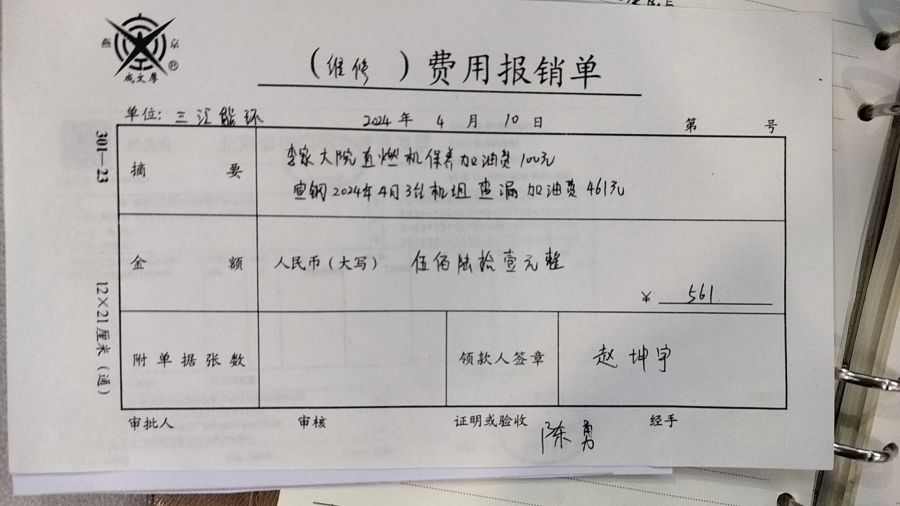 燕京
成文厚
(维修)费用报销单
单位:三汇能环 2024年 4月 10日 第 号
摘要
李家大院直燃机保养加油费100元
宣钢2024年4月3台机组查漏加油费461元
金额 人民币(大写) 伍佰陆拾壹元整
¥ 561
附单据张数 领款人签章 赵坤宇
审批人 审核 证明或验收 陈勇 经手
301—23
12×21厘米(通)